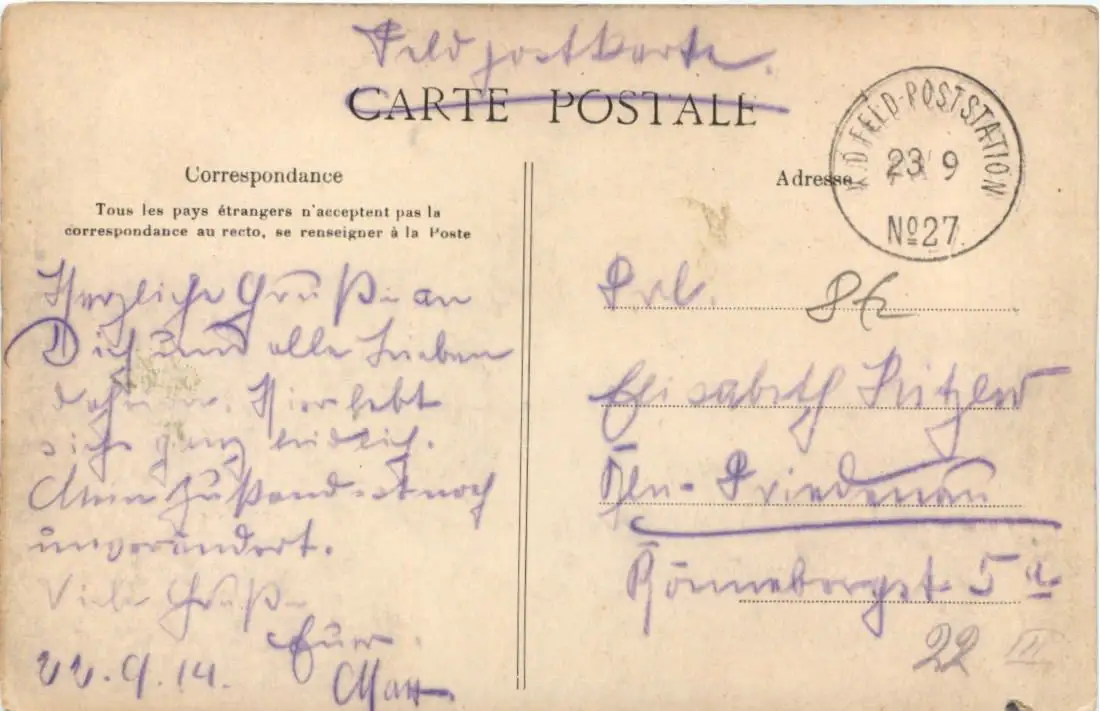 Feldpostkarte.
CARTE POSTALE
K.D. FELD-POSTSTATION
23 9
No 27
Correspondance
Adresse
Tous les pays étrangers n'acceptent pas la
correspondance au recto, se renseigner à la Poste
Herzliche Grüße an
Dich und alle Lieben
daheim. Hier lebt
sichs ganz leidlich.
Mein Zustand ist noch
unverändert.
Viele Grüße
Euer
22.9.14.
Frl.
Elisabeth
Bln-Friedenau
Rönnebergst 5a
22 II